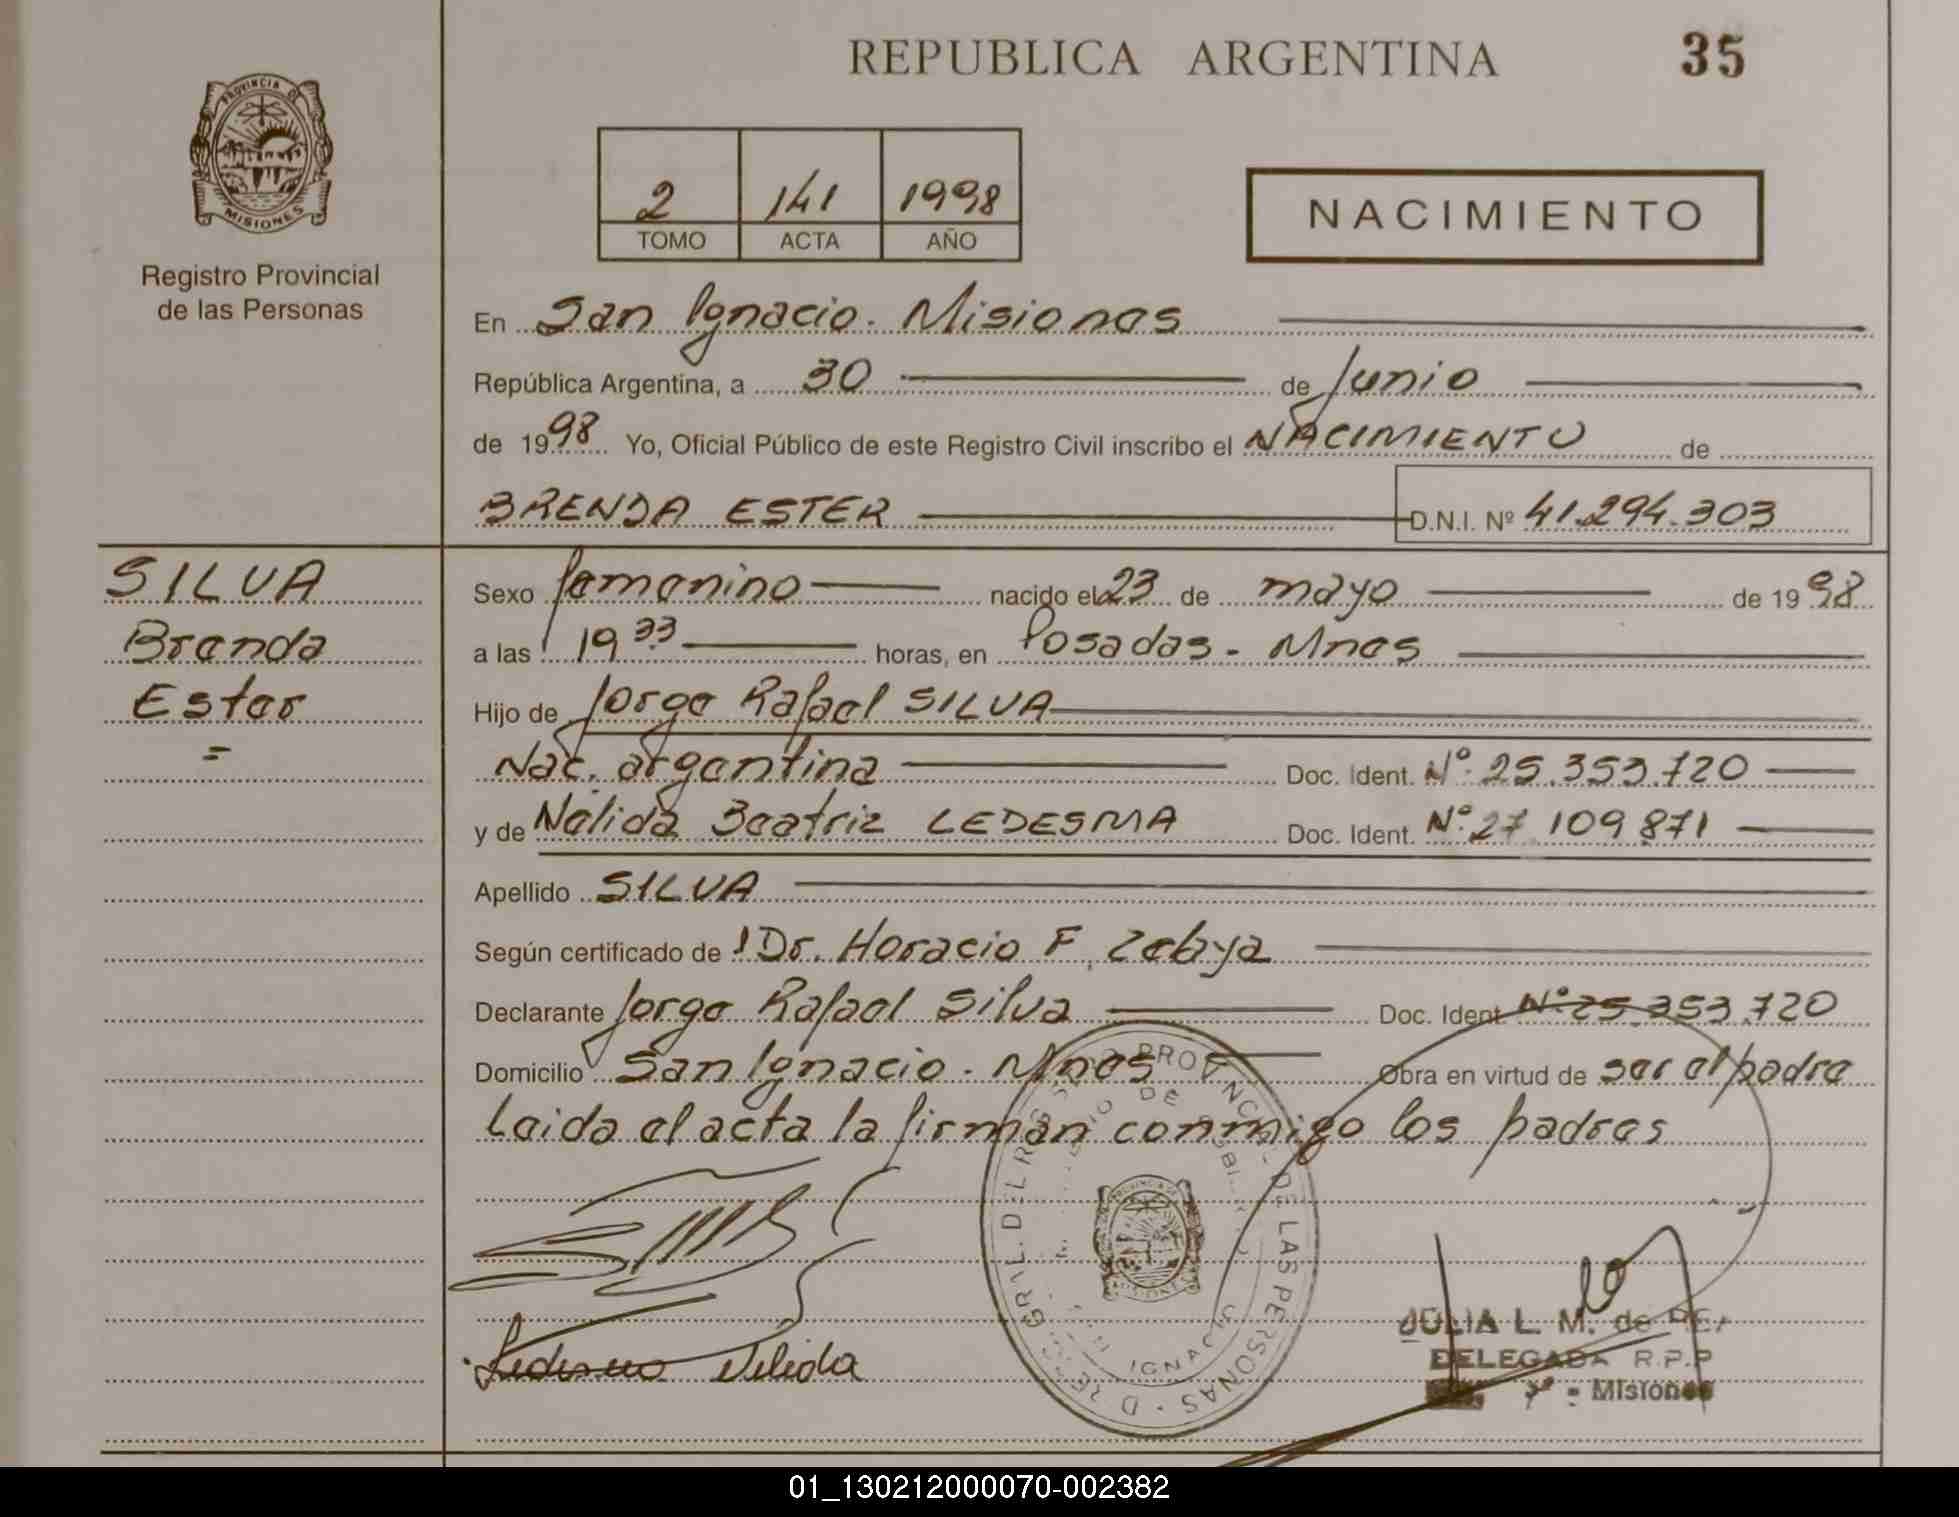 REPUBLICA ARGENTINA
35
PROVINCIA DE
MISIONES
Registro Provincial
de las Personas
2 141 1998
TOMO ACTA AÑO
NACIMIENTO
En San Ignacio. Misiones
República Argentina, a 30 de Junio
de 1998 Yo, Oficial Público de este Registro Civil inscribo el NACIMIENTO de
BRENDA ESTER D.N.I. Nº 41.294.303
SILVA
Brenda
Ester
=
Sexo femenino nacido el 23 de mayo de 1998
a las 19 33 horas, en Posadas - Mnes
Hijo de Jorge Rafael SILVA
Nac. argentina Doc. Ident. Nº 25.353.720
y de Nelida Beatriz LEDESMA Doc. Ident. Nº 27 109 871
Apellido SILVA
Según certificado de Dr. Horacio F. Zebya
Declarante Jorge Rafael Silva Doc. Ident. Nº 25.353.720
Domicilio San Ignacio. Mnes Obra en virtud de ser el padre
Leida el acta la firman conmigo los padres
Ledesma Nelida
JULIA L. M. de
DELEGADA R.P.P
- Misiones
01_130212000070-002382